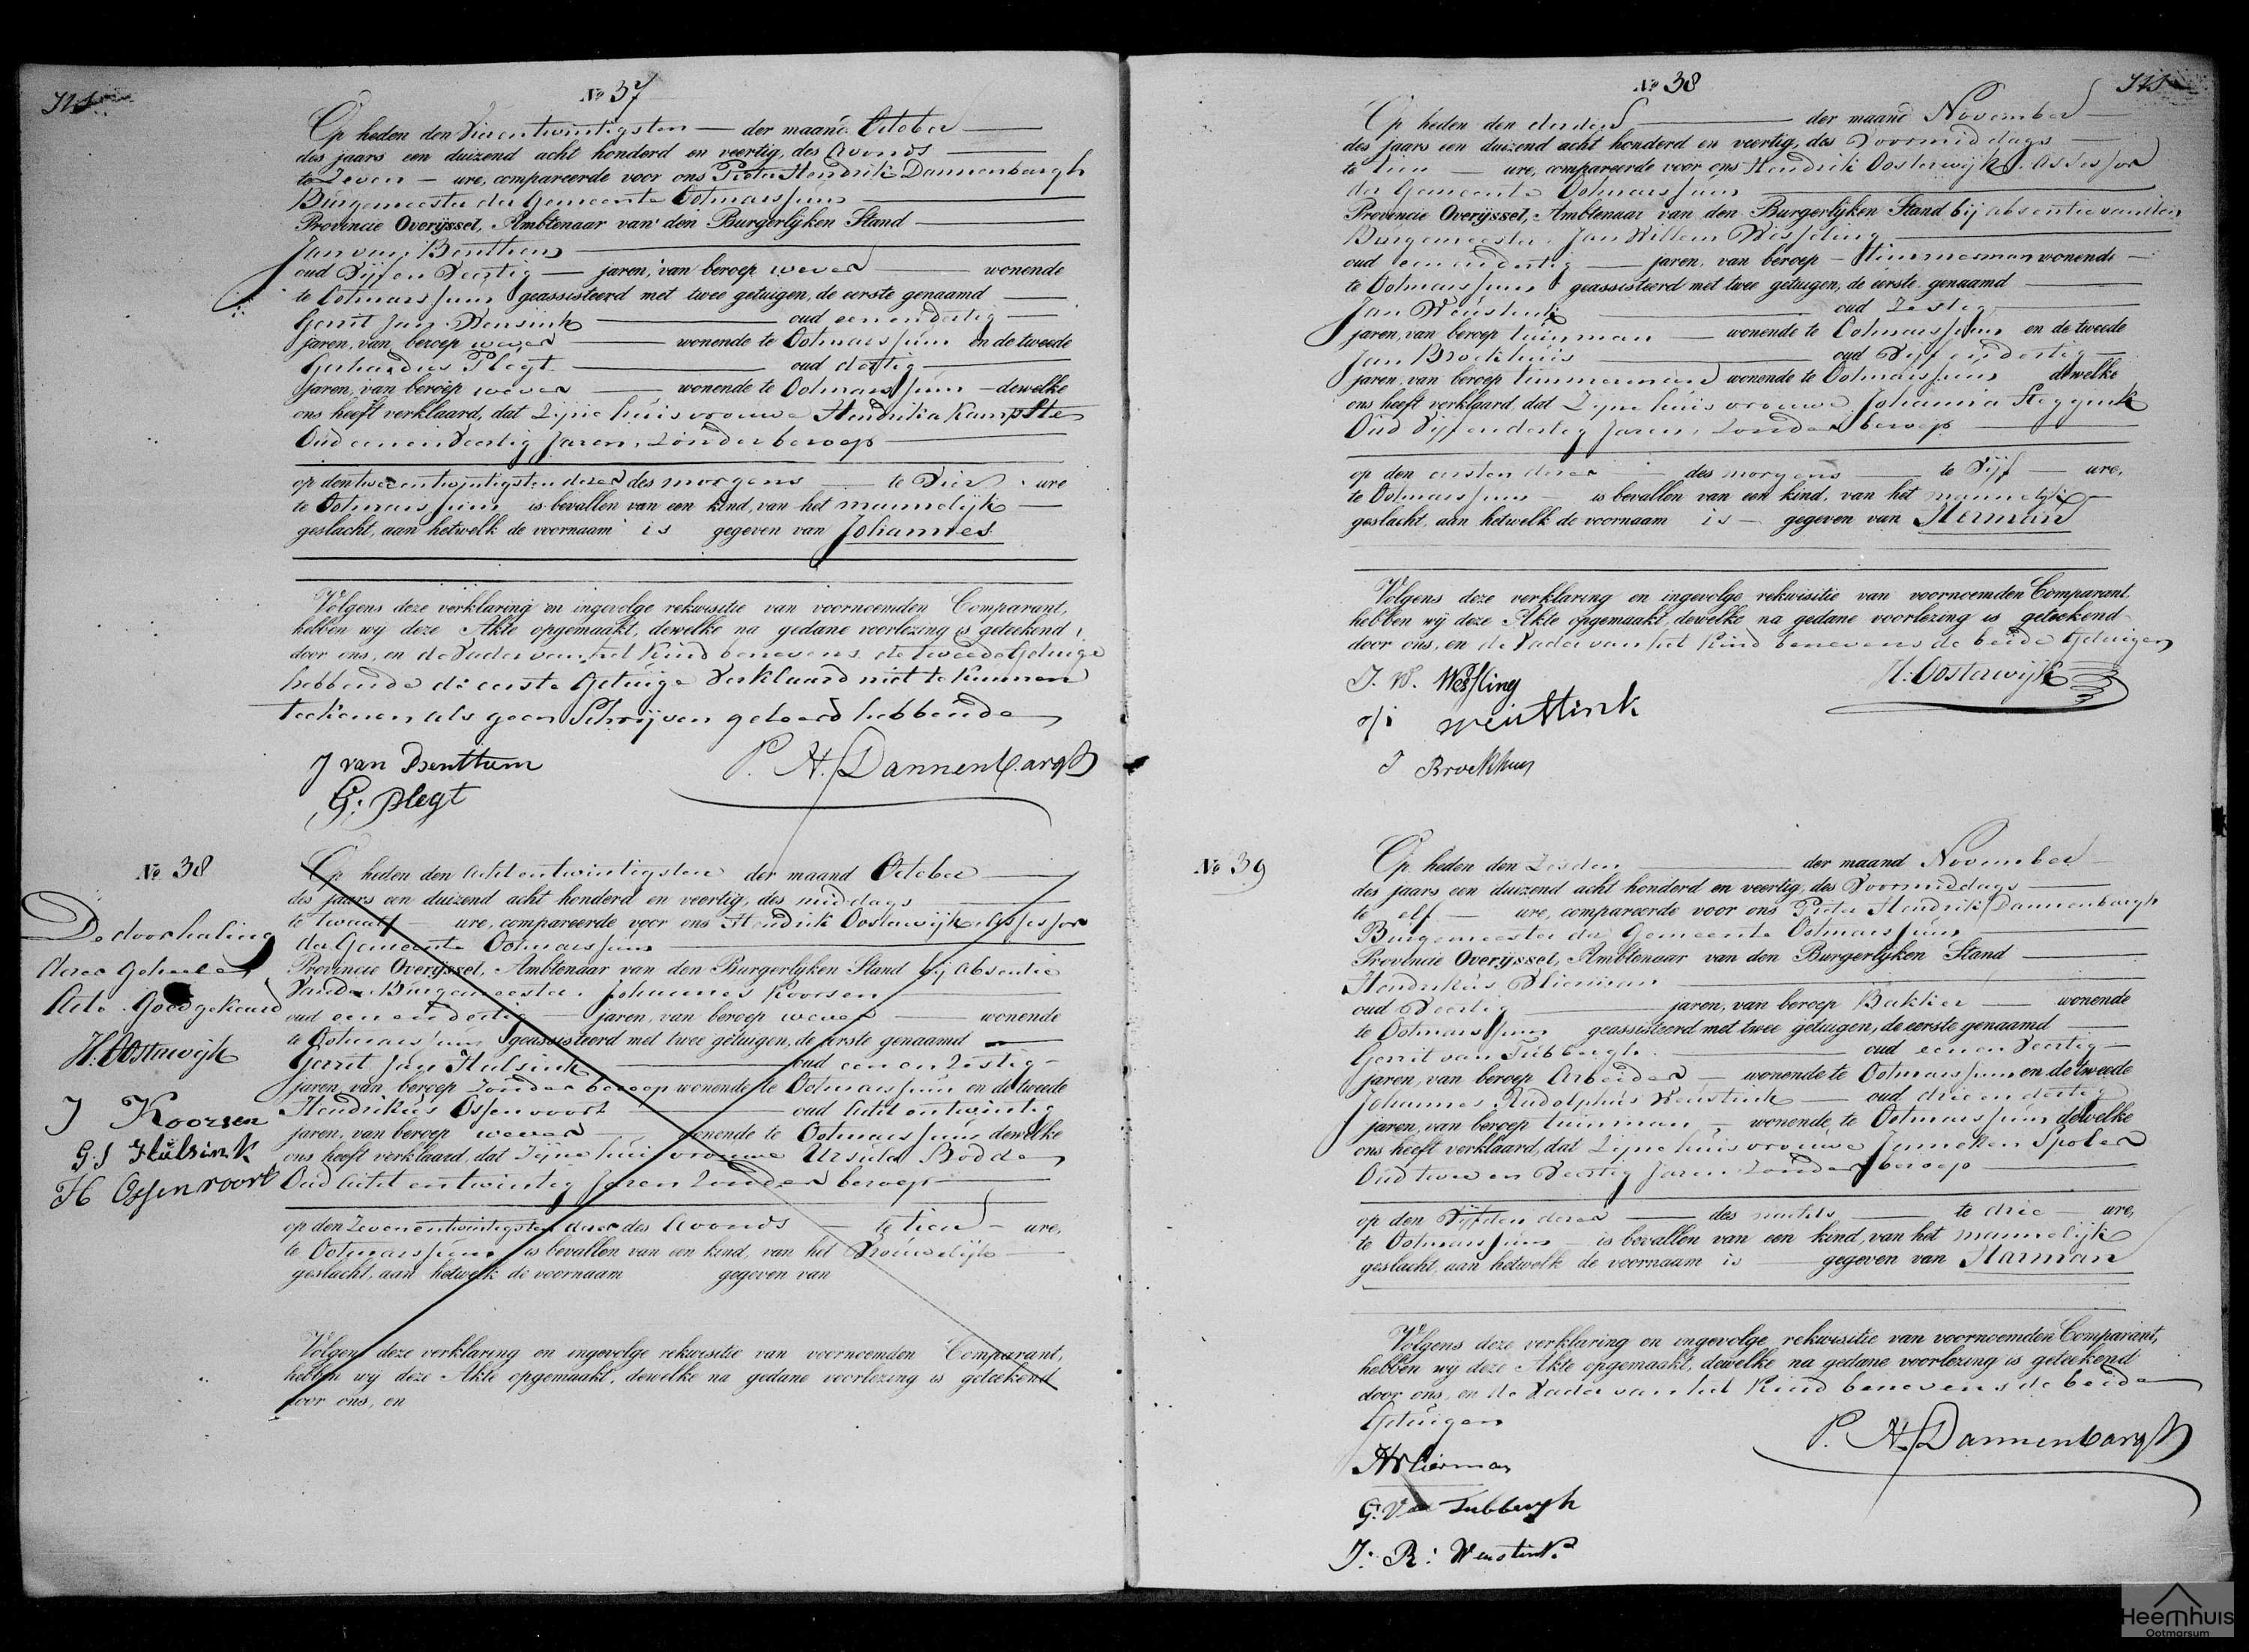 No 37
Op heden den Vierentwintigsten der maand October
des jaars een duizend acht honderd en veertig, des Avonds
te Zeven ure, compareerde voor ons Pieter Hendrik Dannenbargh
Burgemeester der Gemeente Ootmarssum
Provincie Overijssel, Ambtenaar van den Burgerlijken Stand
Jan van Benthem
oud Vijf en Veertig jaren, van beroep wever wonende
te Ootmarssum geassisteerd met twee getuigen, de eerste genaamd
Gerrit Jan Wensink oud een en dertig
jaren, van beroep wever wonende te Ootmarssum en de tweede
Gerhardus Plegt oud dertig
jaren, van beroep wever wonende te Ootmarssum dewelke
ons heeft verklaard, dat Zijne huisvrouwe Hendrika Kampste
Oud een en Veertig Jaren, Zonder beroep
op den twee entwintigsten dezer des morgens te Vier ure
te Ootmarssum is bevallen van een kind, van het mannelijk
geslacht, aan hetwelk de voornaam is gegeven van Johannes
Volgens deze verklaring en ingevolge rekwisitie van voornoemden Comparant,
hebben wij deze Akte opgemaakt, dewelke na gedane voorlezing is geteekend
door ons, en de Vader van het Kind benevens de tweede Getuige
hebbende de eerste Getuige Verklaard niet te kunnen
teekenen als geen Schrijven geleerd hebbende
J van Benthem
P. H. Dannenbargh
G: Plegt
No 38
Op heden den Acht entwintigsten der maand October
des jaars een duizend acht honderd en veertig, des middags
te twaalf ure, compareerde voor ons Hendrik Oosterwijk, Assessor
der Gemeente Ootmarssum
Provincie Overijssel, Ambtenaar van den Burgerlijken Stand bij Absentie
Van den Burgemeester. Johannes Koorsen
oud een en dertig jaren, van beroep wever wonende
te Ootmarssum geassisteerd met twee getuigen, de eerste genaamd
Gerrit Jan Hulsink oud een en Zestig
jaren, van beroep Zonder beroep wonende te Ootmarssum en de tweede
Hendrikus Ossenvoort oud Acht entwintig
jaren, van beroep wever wonende te Ootmarssum dewelke
ons heeft verklaard, dat Zijne huisvrouwe Ursula Bodde
Oud acht entwintig Jaren Zonder beroep
op den Zeven entwintigsten dezer des Avonds te tien ure,
te Ootmarssum is bevallen van een kind, van het Vrouwelijk
geslacht, aan hetwelk de voornaam gegeven van
Volgens deze verklaring en ingevolge rekwisitie van voornoemden Comparant,
hebben wij deze Akte opgemaakt, dewelke na gedane voorlezing is geteekend
door ons, en
De doorhaling
dezer Geheele
Acte Goedgekeurd
H. Oosterwijk
J Koorsen
G. J Hulsink
H Ossenvoort
No 38
Op heden den derden der maand November
des jaars een duizend acht honderd en veertig, des Voormiddags
te tien ure, compareerde voor ons Hendrik Oosterwijk, Assessor
der Gemeente Ootmarssum
Provincie Overijssel, Ambtenaar van den Burgerlijken Stand bij absentie van den
Burgemeester. Jan Willem Wesseling
oud een en dertig jaren, van beroep Timmerman wonende
te Ootmarssum geassisteerd met twee getuigen, de eerste genaamd
Jan Weustink oud Zestig
jaren, van beroep tuinman wonende te Ootmarssum en de tweede
Jan Broekhuis oud Vijf en dertig
jaren, van beroep timmerman wonende te Ootmarssum dewelke
ons heeft verklaard, dat Zijne huisvrouwe Johanna Steggink
Oud Vijf en dertig Jaren, Zonder beroep
op den eersten dezer des morgens te Vijf ure,
te Ootmarssum is bevallen van een kind, van het mannelijk
geslacht, aan hetwelk de voornaam is gegeven van Herman
Volgens deze verklaring en ingevolge rekwisitie van voornoemden Comparant
hebben wij deze Akte opgemaakt, dewelke na gedane voorlezing is geteekend
door ons, en de Vader van het Kind benevens de beide Getuigen
J. W. Wessling
H: Oosterwijk
weustink
J Broekhuis
No 39
Op heden den Zesden der maand November
des jaars een duizend acht honderd en veertig, des Voormiddags
te elf ure, compareerde voor ons Pieter Hendrik Dannenbargh
Burgemeester der Gemeente Ootmarssum
Provincie Overijssel, Ambtenaar van den Burgerlijken Stand
Hendrikus Vlierman
oud Veertig jaren, van beroep Bakker wonende
te Ootmarssum geassisteerd met twee getuigen, de eerste genaamd
Gerrit van Tubbergh oud een en Veertig
jaren, van beroep Arbeider wonende te Ootmarssum en de tweede
Johannes Rudolphus Weustink oud drie en dertig
jaren, van beroep tuinman, wonende te Ootmarssum dewelke
ons heeft verklaard, dat Zijne huisvrouwe Janneken Spoler
Oud twee en Veertig Jaren Zonder beroep
op den Vijfden dezer des nachts te drie ure,
te Ootmarssum is bevallen van een kind, van het mannelijk
geslacht, aan hetwelk de voornaam is gegeven van Harman
Volgens deze verklaring en ingevolge rekwisitie van voornoemden Comparant,
hebben wij deze Akte opgemaakt, dewelke na gedane voorlezing is geteekend
door ons, en de Vader van het Kind benevens de beide
Getuigen
P. H. Dannenbargh
H Vlierman
G: Van Tubbergh
J: R: Weustink
Heemhuis
Ootmarsum